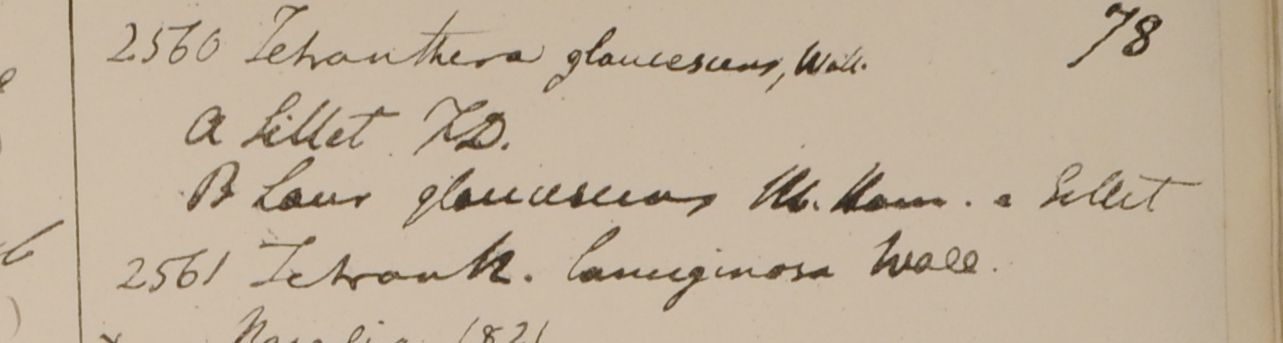 2560 Tetranthera glaucescens, Wall. 78
A Sillet FD.
B Laur glaucescens Hb. Ham. e Sillet
2561 Tetranth. lanuginosa Wall.
Napalia 1821